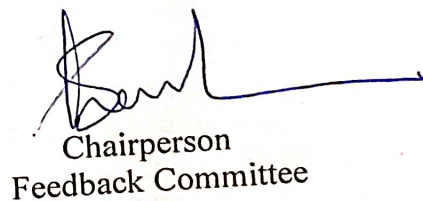 Chairperson
Feedback Committee